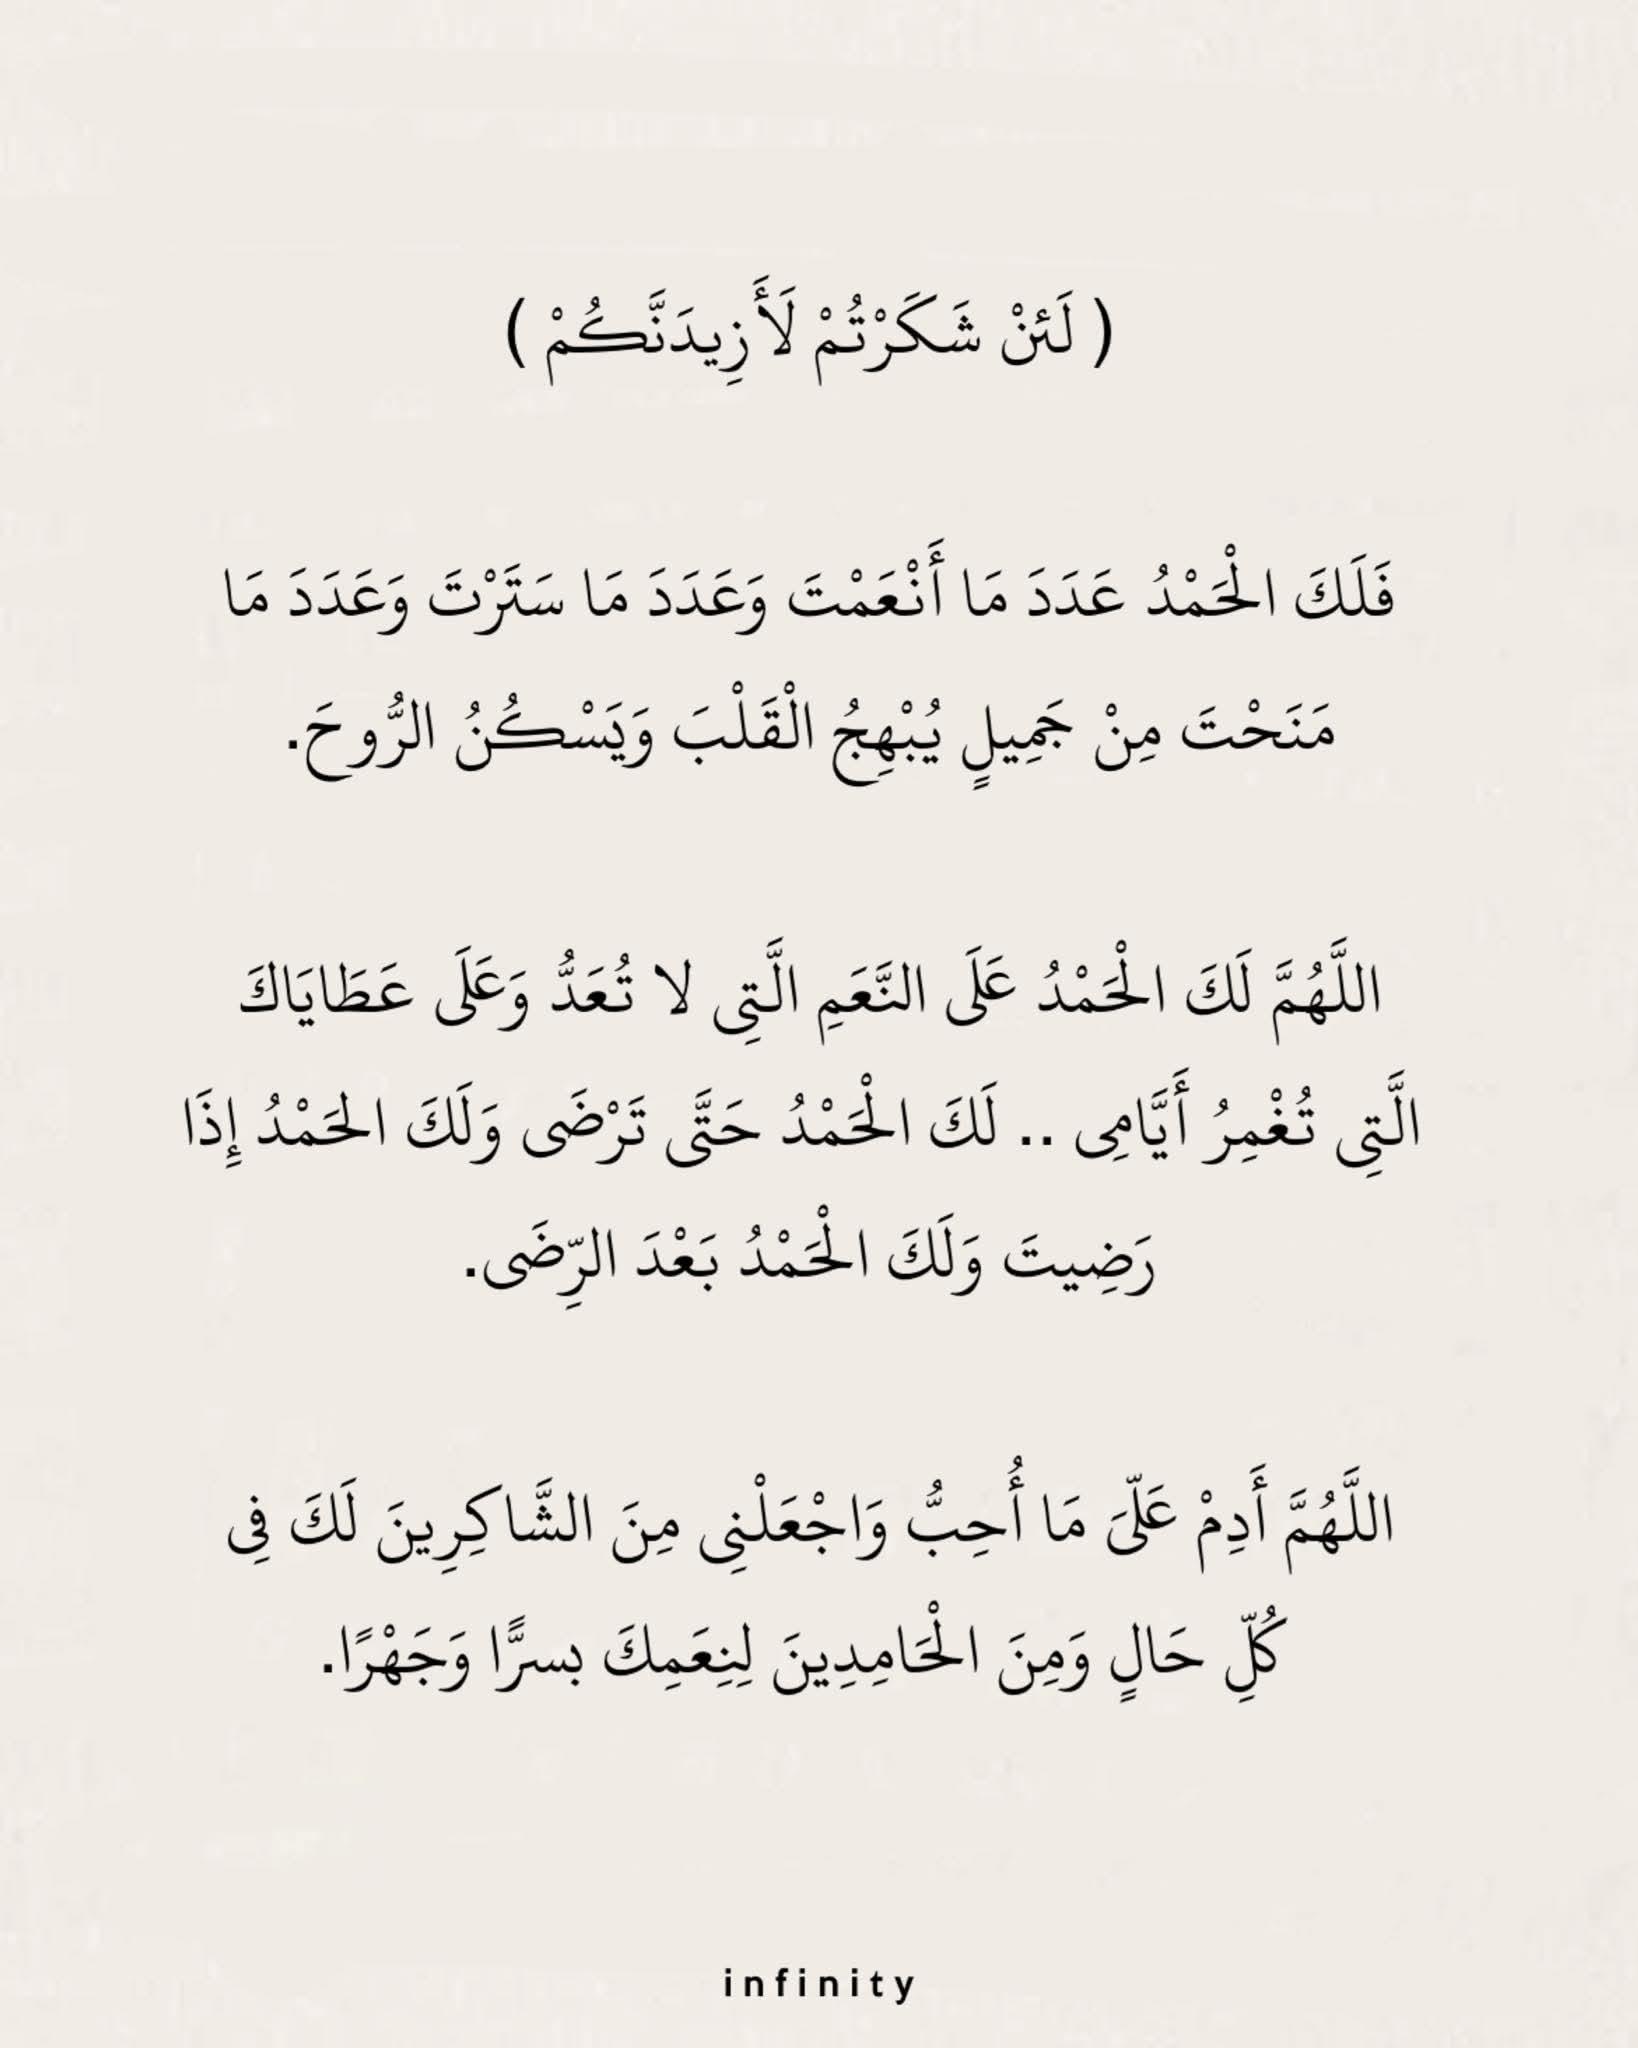 ( لَئنْ شَكَرْتُمْ لَأَزِيدَنَّكُمْ )
فَلَكَ الْحَمْدُ عَدَدَ مَا أَنْعَمْتَ وَعَدَدَ مَا سَتَرْتَ وَعَدَدَ مَا
مَنَحْتَ مِنْ جَمِيلٍ يُبْهِجُ الْقَلْبَ وَيَسْكُنُ الرُّوحَ.
اللَّهُمَّ لَكَ الْحَمْدُ عَلَى النَّعَمِ الَّتِى لا تُعَدُّ وَعَلَى عَطَايَاكَ
الَّتِى تُغْمِرُ أَيَّامِى .. لَكَ الْحَمْدُ حَتَّى تَرْضَى وَلَكَ الحَمْدُ إِذَا
رَضِيتَ وَلَكَ الْحَمْدُ بَعْدَ الرِّضَى.
اللَّهُمَّ أَدِمْ عَلَّىَ مَا أُحِبُّ وَاجْعَلْنِى مِنَ الشَّاكِرِينَ لَكَ فِى
كُلِّ حَالٍ وَمِنَ الْحَامِدِينَ لِنِعَمِكَ بسرًّا وَجَهْرًا.
infinity